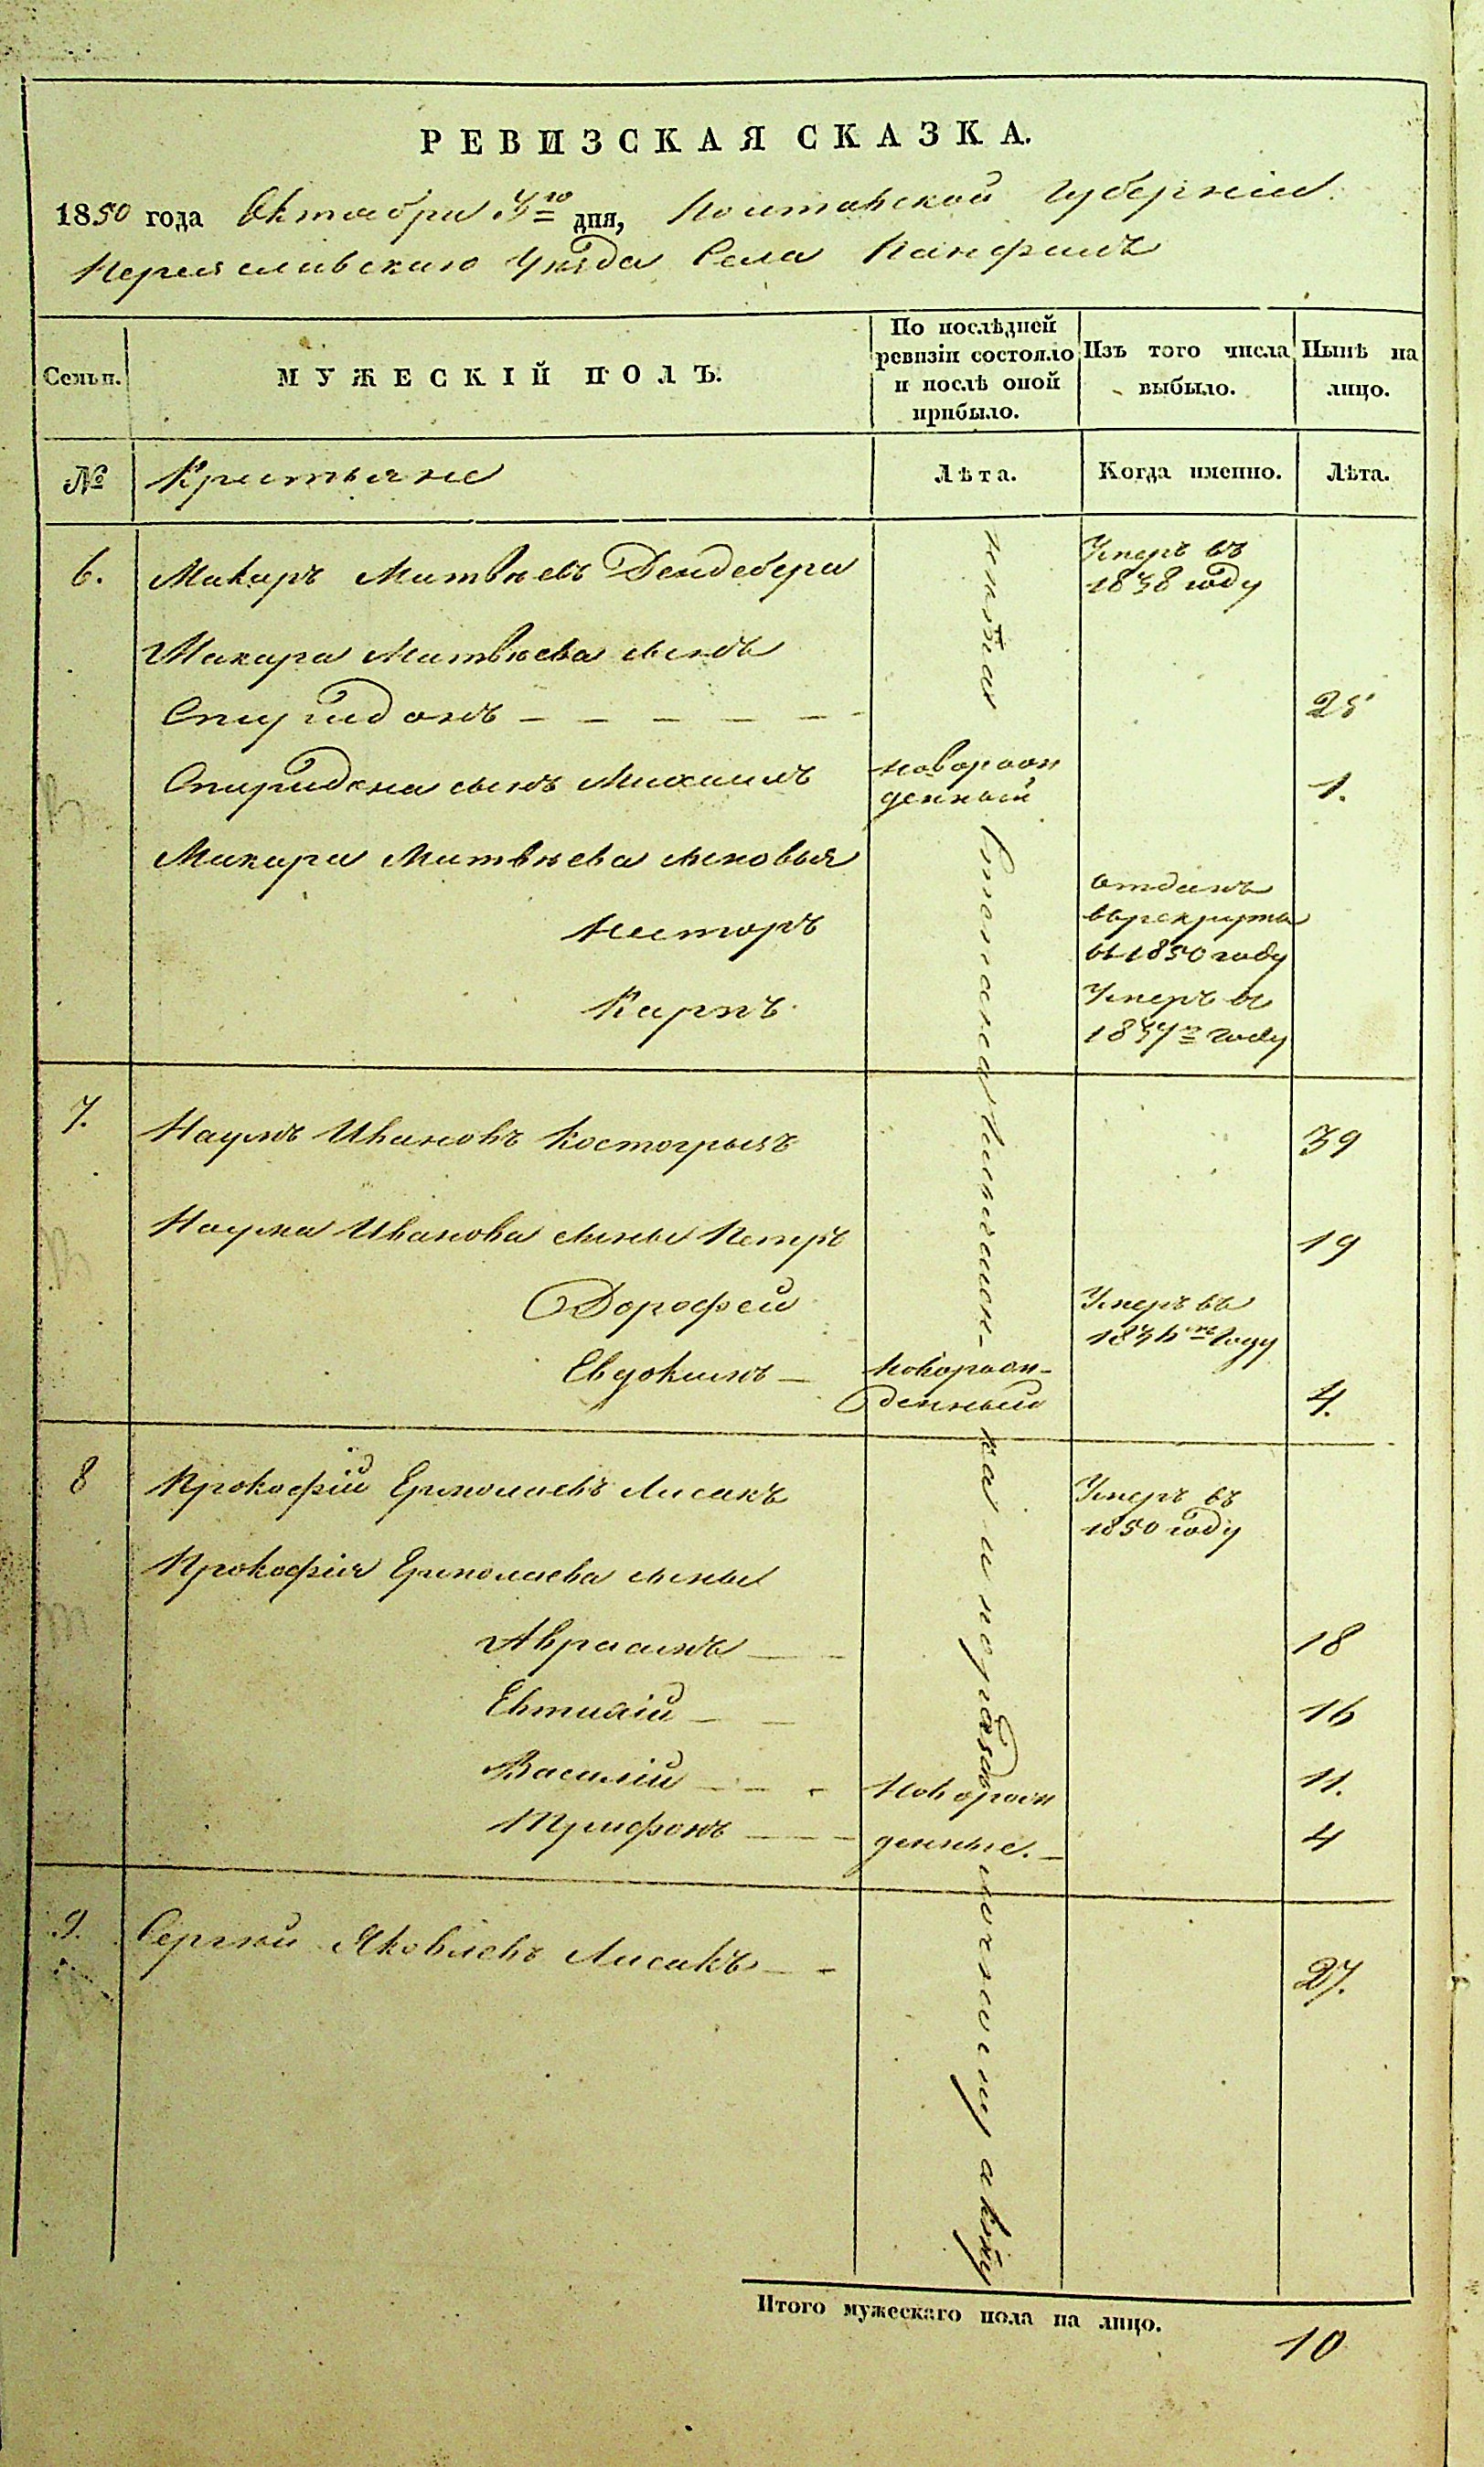 РЕВИЗСКАЯ СКАЗКА.
1850 года Октября 3го дня, Полтавской Губерніи
Переяславскаго Уѣзда Села Панфилъ
Семьи.
МУЖЕСКІЙ ПОЛЪ.
По послѣдней ревизіи состояло и послѣ оной прибыло.
Изъ того числа выбыло.
Нынѣ на лицо.
№
Крестьяне
Лѣта.
Когда именно.
Лѣта.
6. Макаръ Матвѣевъ Дендебера Умеръ въ
1838 году
Макара Матвѣева сынъ
Спиридонъ 25
Спиридона сынъ Михаилъ новорож
денный 1.
Макара Матвѣева сыновья
Несторъ отданъ
въ рекруты
въ 1850 году
Карпъ Умеръ въ
1837м году
7. Наумъ Ивановъ Костогрызъ 39
Наума Иванова сыны Петръ 19
Дорофей Умеръ въ
1836м году
Евдокимъ новорож-
денный 4.
8 Прокофій Ермолаевъ Лисакъ Умеръ въ
1850 году
Прокофія Ермолаева сыны
Авраамъ 18
Евтихій 16
Василій 11.
Трифонъ новорож
денные. 4
9. Сергѣй Яковлевъ Лисакъ 27.
Итого мужескаго пола на лицо.
10